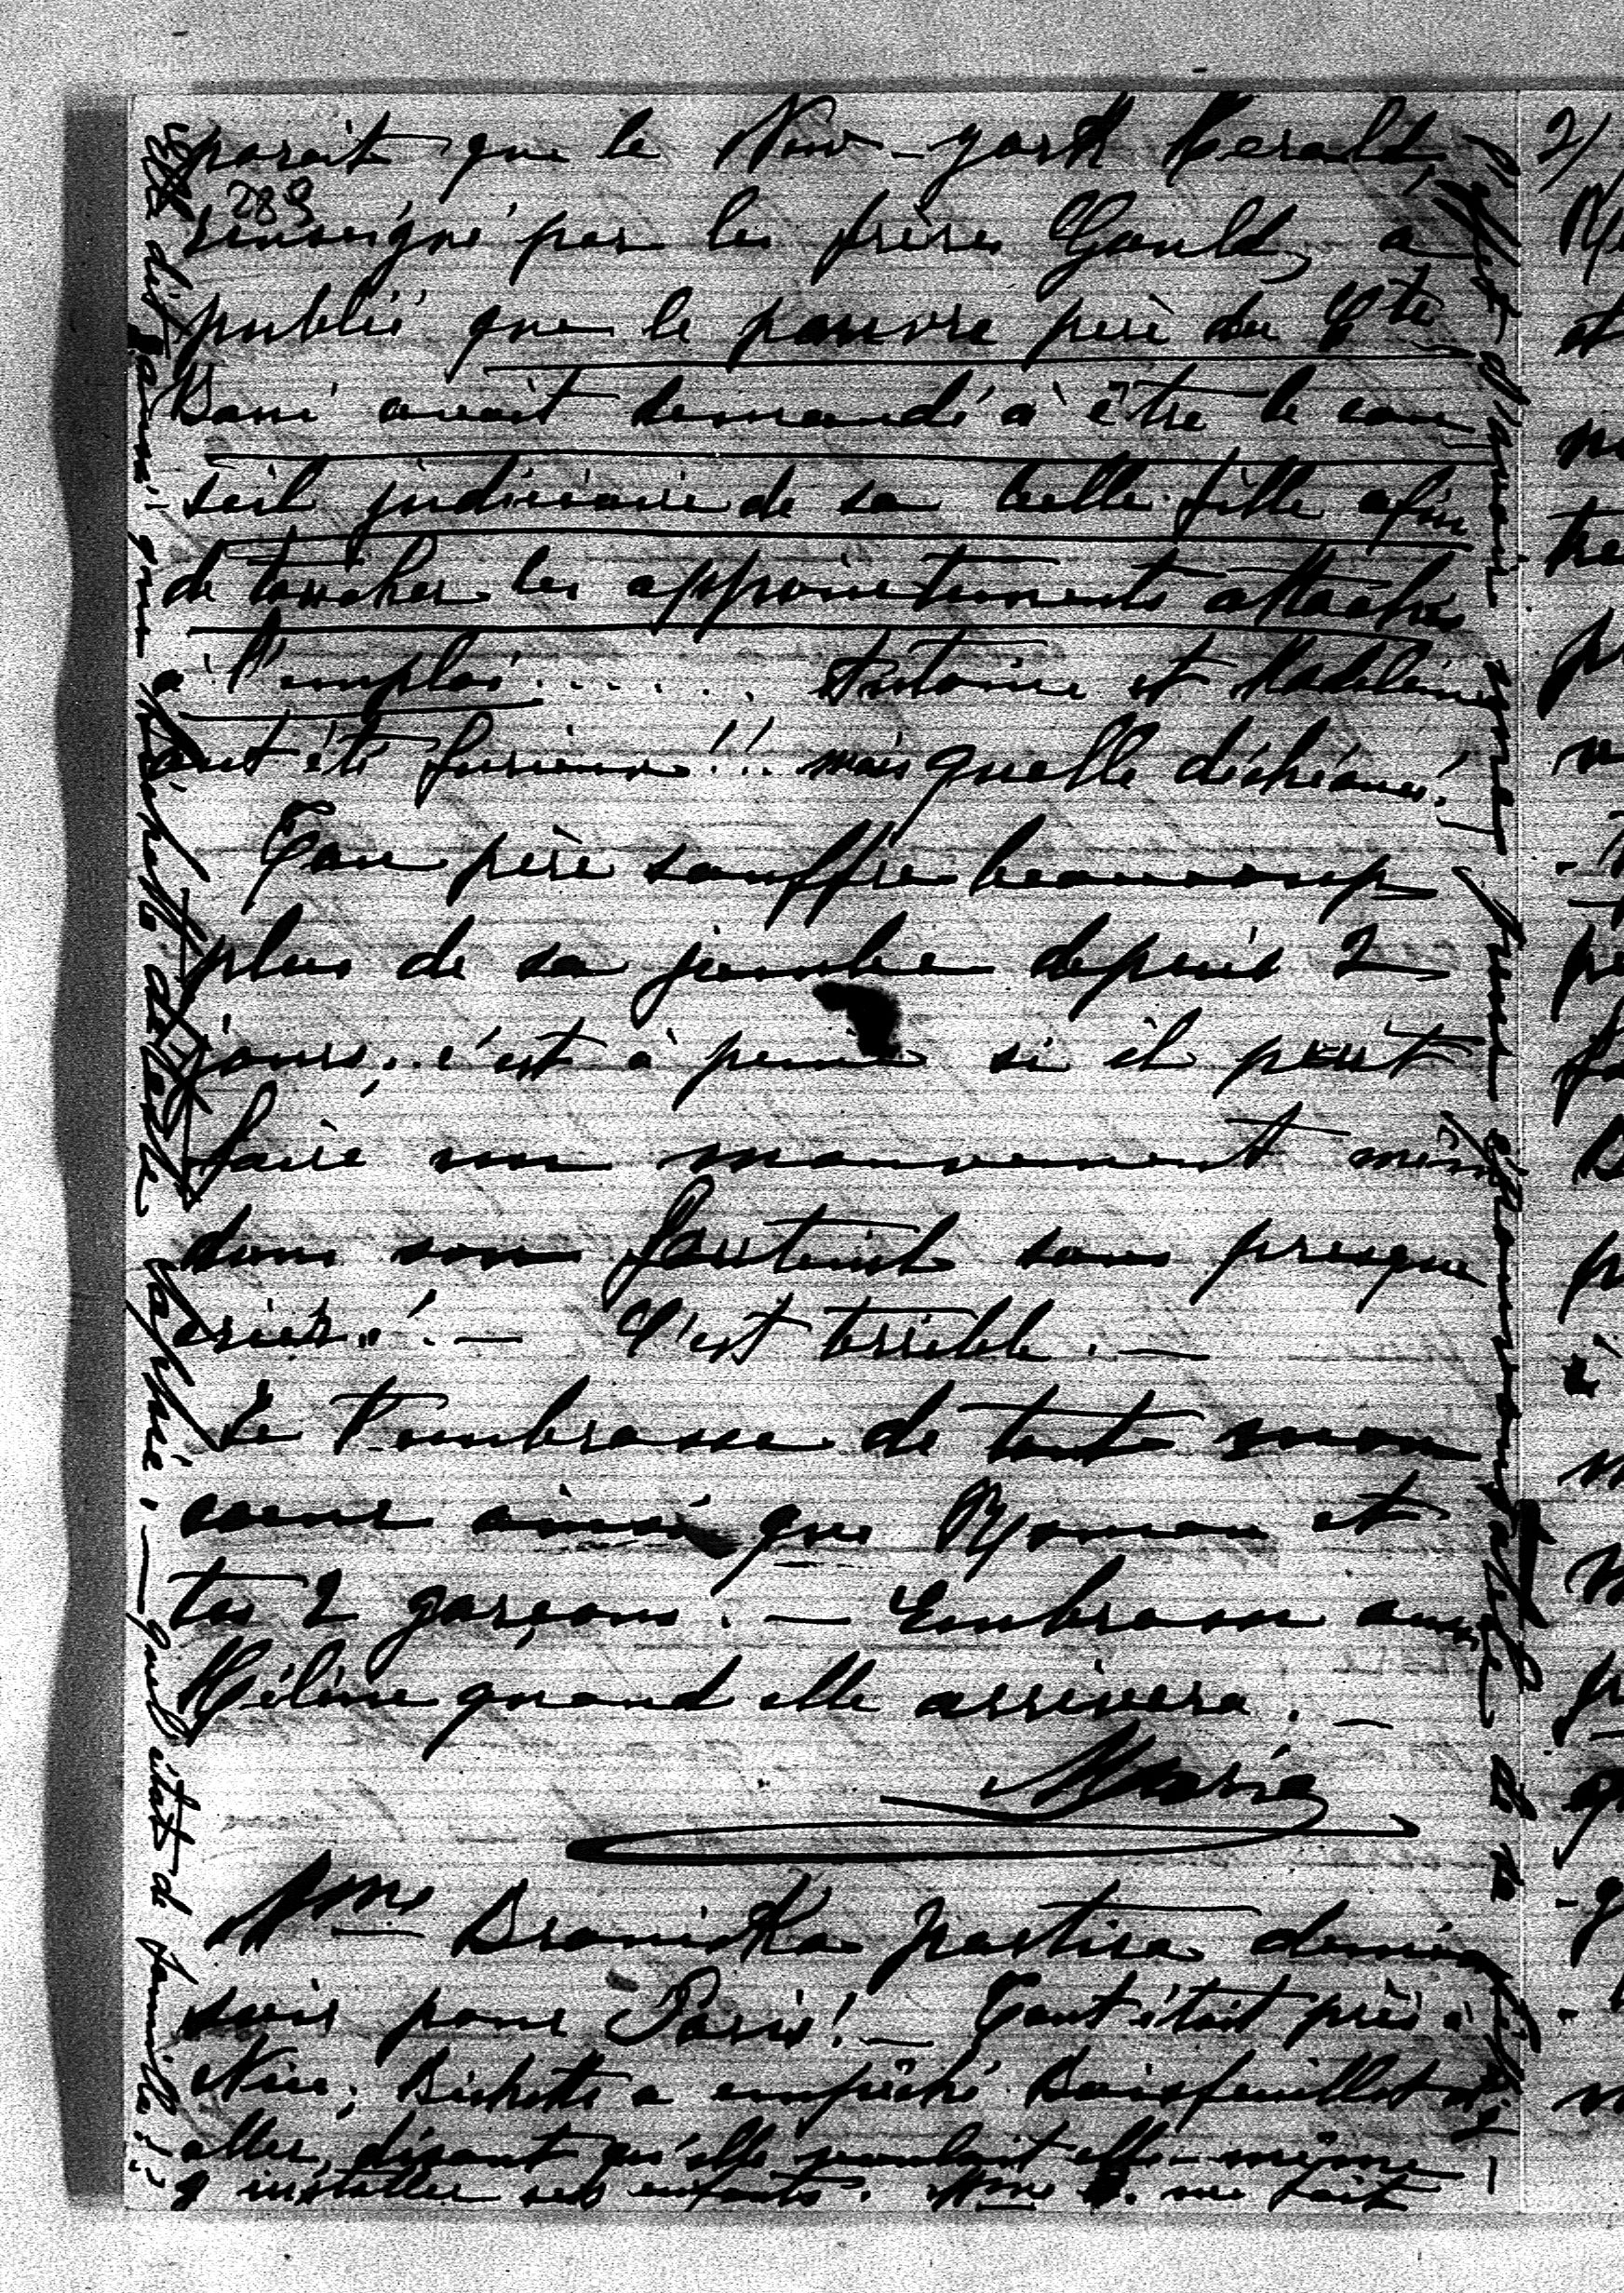 parait que le New-York Herald,
289
renseigné par les frères Gould, a
publié que le pauvre père du Cte
Boni avait demandé à être le con
seil judiciaire de sa belle-fille afin
de toucher les appointements attachés
à l'emploi....... Antoine et Madeleine
ont été furieux!!! mais quelle déchéance!
Ton père souffre beaucoup
plus de sa jambe depuis 2
jours, c'est à peine si il peut
faire un mouvement même
dans son fauteuil sans presque
crier..! — C'est terrible. —
Je t'embrasse de tout mon
coeur ainsi que Roman et
tes 2 garçons. — Embrasse aussi
Hélène quand elle arrivera. —
Marie
Mme Branicka partira demain
soir pour Paris! — Tout était prêt à
Nice, Bichette a empêché Boisfeuillet d'y
aller, disant qu'elle voulait elle-même
y installer ses enfants. Mme B. me fait
l'effet d'avoir une peur épouvantable de sa fille
dit Jamais que Bichette
. — Quel état de famille!!